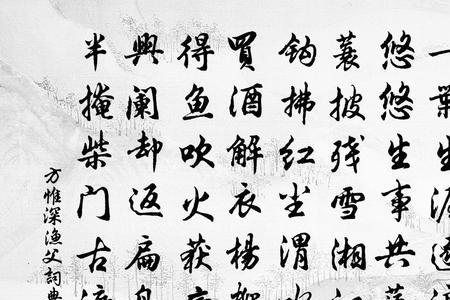 一葉生涯
悠悠生事共
蓑披残雪湘
鈎拂红尘渭
買酒解衣楊
得魚吹火荻
興阑却返扁舟
半掩柴门古
方惟深漁父詞